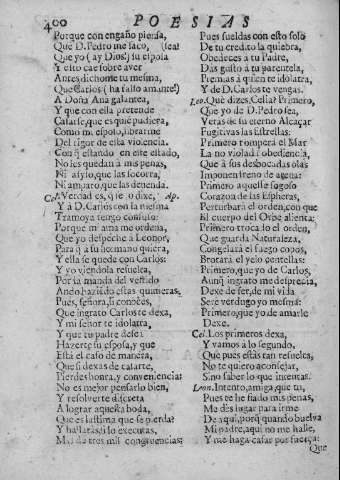 400 POESIAS
Porque con engaño piensa,
Que D. Pedro me saco, (sea!
Que yo (ay Dios) su esposa
Y esto cae sobre aver
Antes dichome tu mesma,
Que Carlos (ha falso amante!)
A Doña Ana galantea,
Y que con ella pretende
Casarse, que es què pudiera,
Como mi esposo, librarme
Del rigor de esta violencia.
Con q̃ estando en este estado,
No les quedan à mis penas,
Ni asylo, que las socorra,
Ni amparo, que las defienda.
Cel. Verdad es, q̃ te o dixe, Ap.
Y à D. Carlos con la mesma
Tramoya tengo confuso:
Porque mi ama me ordena,
Que yo despeche à Leonor,
Para q̃ a su hermano quiera,
Y ella se quede con Carlos:
Y yo viendola resuelta,
Por la manda del vestido
Ando haziendo estas quimeras.
Pues, señora, si conoces,
Que ingrato Carlos te dexa,
Y mi señor te idolatra,
Y que tu padre desea
Hazerte su esposa, y que
Està el caso de manera,
Que si dexas de casarte,
Pierdes honra, y conveniencia:
No es mejor pensarlo bien,
Y resolverte discreta
A lograr aquesta boda,
Que es lastima que se pierda?
Y hallaràs, si lo executas,
Mas de tres mil congruencias:
Pues sueldas con esto solo
De tu credito la quiebra,
Obedeces a tu Padre,
Das gusto à tu parentela,
Premias à quien te idolatra,
Y de D. Carlos te vengas.
Leo. Què dizes, Celia? Primero,
Que yo de D. Pedro sea,
Veras de su eterno Alcaçar
Fugitivas las Estrellas:
Primero romperà el Mar
La no violada obediencia,
Que à sus desbocadas olas
Imponen freno de arena:
Primero aquesse fogoso
Corazon de las Espheras,
Perturbarà el orden, con que
El cuerpo del Orbe alienta:
Primero trocado el orden,
Que guarda Naturaleza,
Congelarà el fuego copos,
Brotarà el yelo centellas:
Primero, que yo de Carlos,
Aunq̃ ingrato me desprecia,
Dexe de ser, de mi vida
Serè verdugo yo mesma:
Primero, que yo de amarle
Dexe.
Cel. Los primeros dexa,
Y vamos a lo segundo,
Que pues estàs tan resuelta,
No te quiero aconsejar,
Sino saber lo que intentas.
Leon. Intento, amiga, que tu,
Pues te he fiado mis penas,
Me dès lugar para irme
De aqui, porq̃ quando buelva
Mi padre, aqui no me halle,
Y me haga casar por fuerça:
Que